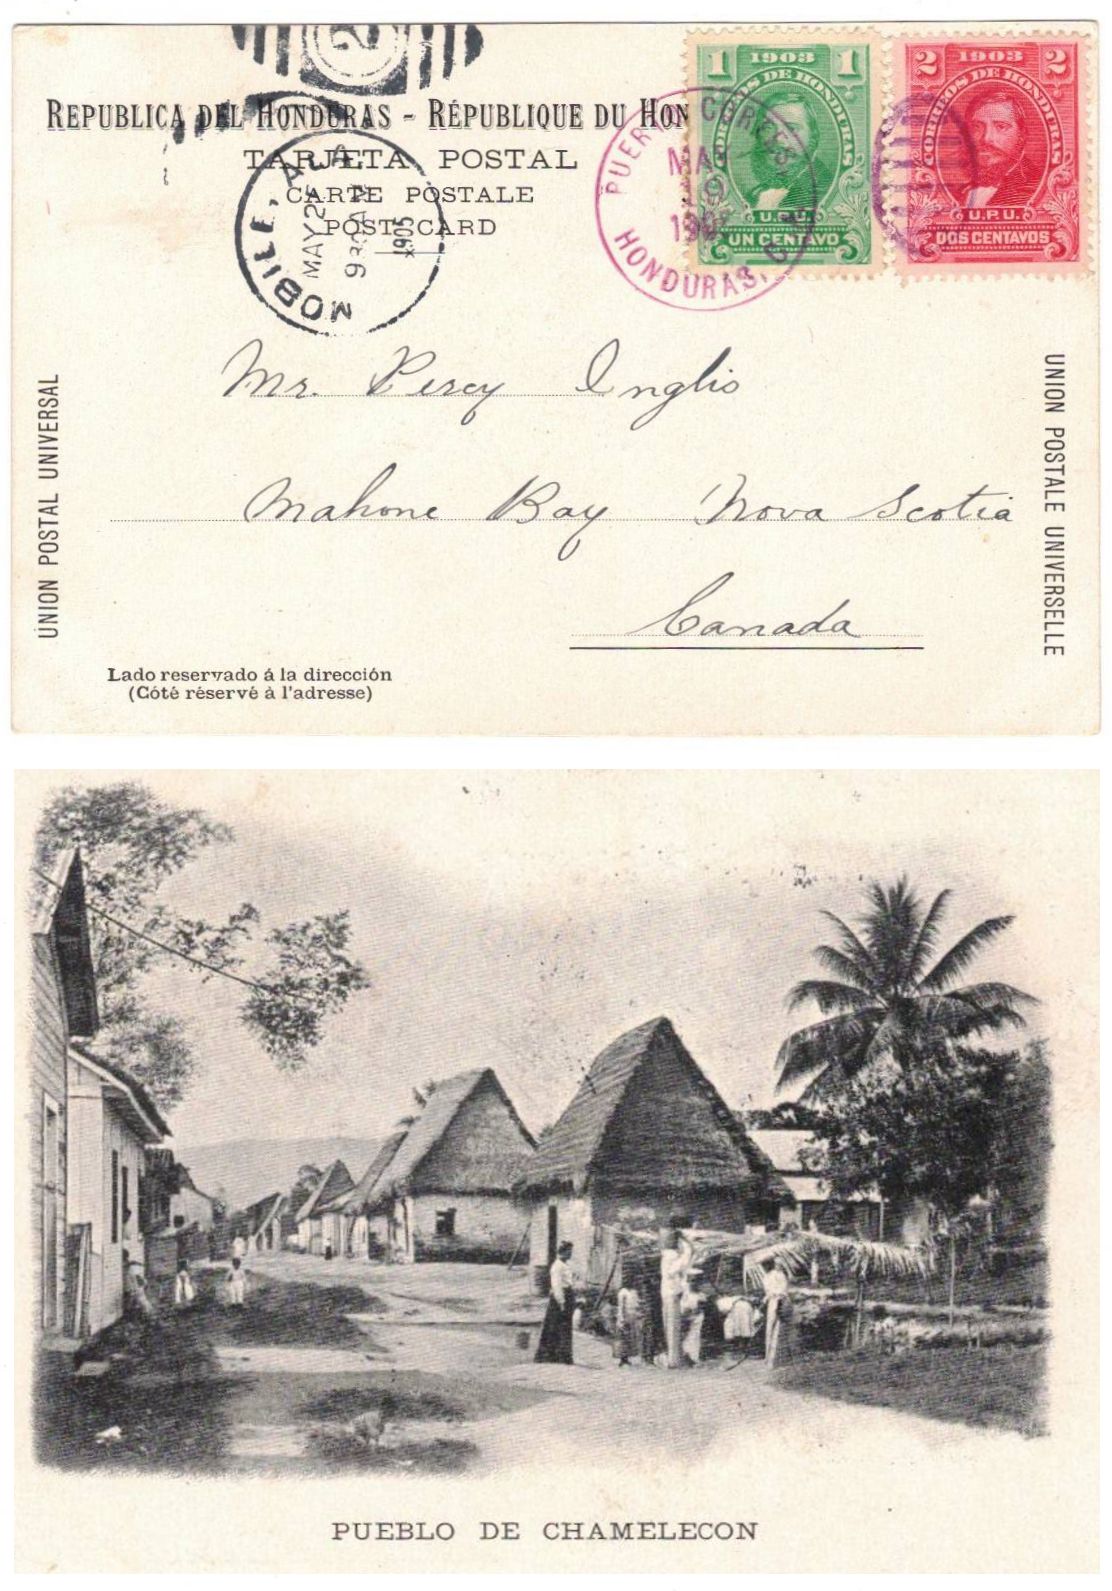 REPUBLICA DEL HONDURAS - RÉPUBLIQUE DU HON
TARJETA POSTAL
CARTE POSTALE
POST CARD
MOBILE, ALA
MAY 2
9 30 AM
1905
2
PUERTO CORTES
HONDURAS, C
MAY
19
190
1903
1 1
CORREOS DE HONDURAS
U.P.U.
UN CENTAVO
1903
2 2
CORREOS DE HONDURAS
U.P.U.
DOS CENTAVOS
Mr. Percy Inglis
Mahone Bay Nova Scotia
Canada
UNION POSTAL UNIVERSAL
UNION POSTALE UNIVERSELLE
Lado reservado á la dirección
(Côté réservé à l'adresse)
PUEBLO DE CHAMELECON